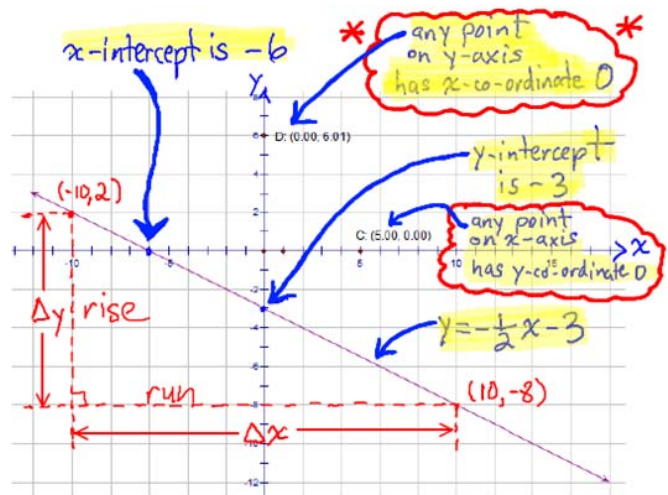 x-intercept is -6
* any point *
on y-axis
has x-co-ordinate 0
y
8
D: (0.00, 6.01)
6
4
y-intercept
is -3
(-10,2)
2
C: (5.00, 0.00)
any point
on x-axis
has y-co-ordinate 0
-10
-5
5
10
15
x
-2
Δy rise
-4
y=-1/2x-3
-6
run
(10,-8)
-8
Δx
-10
-12